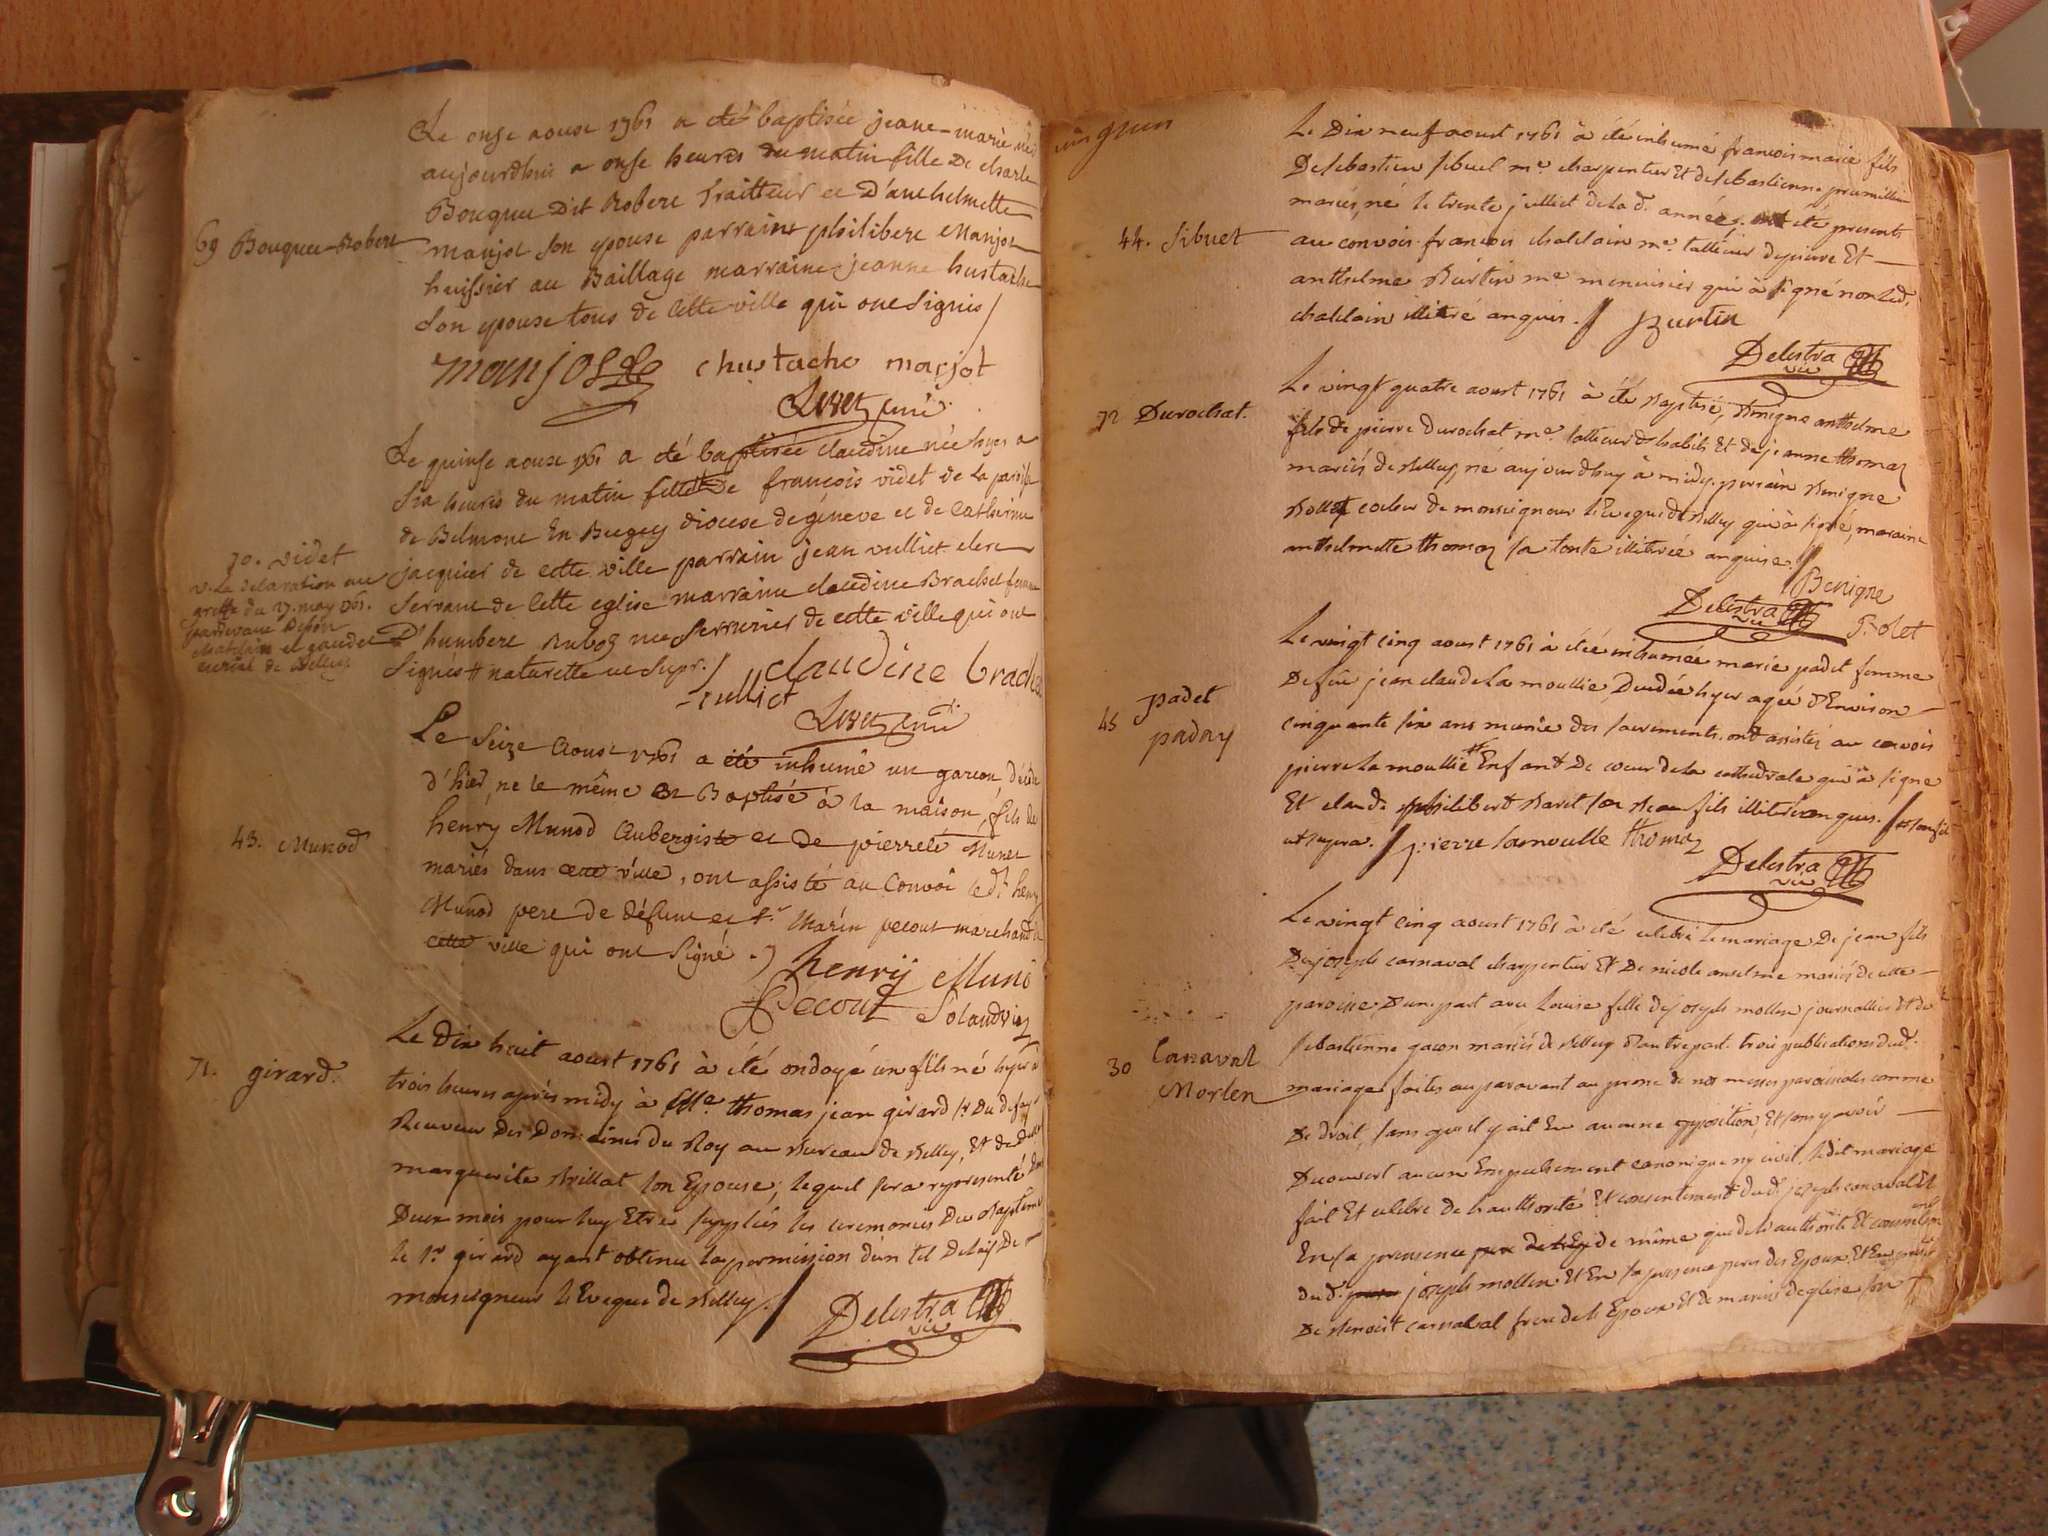 Le onse aoust 1761 a été baptisée jeane-marie née
aujourdhui a onse heures du matin fille de charle
Bouquet dit Robert traitteur et d'anthelmette
69 Bouquet-Robert
manjot son epouse parrains philibert Manjot
huissier au Baillage marraine jeanne hustache
son epouse tous de cette ville qui ont signés /
manjot chustache marjot
Livet curé
Le quinse aoust 1761 a été baptisée claudine née hyer a
six heures du matin fille de françois videt de la paroisse
de Belmont En Bugey diocese de géneve et de Catherine
70. videt
v. la declaration au
greffe du 27. may 1761.
pardevant
chatelain et gaudet
curial de Belley
jacquier de cette ville parrain jean vulliet clerc
servant de cette eglise marraine claudine Brachet femme
d'humbert Ruboz me serrurier de cette ville qui ont
signés # naturelle ut supr. /
claudine brachet
vulliet
Livet curé
Le seize Aoust 1761 a été inhumé un garçon décédé
d'hier, né le même et Baptisé à la maison, fils de
43. Munod
henry Munod Aubergiste et de pierrete Munet
mariés dans cette ville, ont assisté au Convoi le dt henry
Munod pere de défunt et sr Marin pecout marchand de
cette ville qui ont signé.
henrij Muno
Pecout Solaudviez
71. girard.
Le dix huit aoust 1761 à été ondoyé un fils né hyer à
trois heures après midy à Me thomas jean girard sr Du defay
Receveur Des Domaines du Roy au Bureau de Belley, Et de Delle
marguerite Brillat son Epouse; lequel sera representé Dans
Deux mois pour luy Etre supplées les ceremonies Du Baptême
le sr girard ayant obtenu la permission d'un tel Delais De
monseigneur l'Eveque de Belley. /
Delestra vic
vingt un
Le Dix neuf aoust 1761 à été inhumé francois marie fils
De sebastien sibuet me charpentier Et de sebastienne premillieu
mariés, né le trente juilliet de lad. année, ont été presents
44. Sibuet
au convois francois chatelain me tallieur de pierre Et
anthelme Burtin me menuisier qui à signé non led.
chatelain illitéré anquis. / Burtin
Delestra vic
72 Durochat.
Le vingt quatre aoust 1761 à été Baptisé, Benigne anthelme
fils de pierre durochat me tallieur d'habits Et de jeanne thomaz
mariés de Belley né aujourdhuy à midy. parrain Benigne
Rollet cocher de monseigneur l'Eveque de Belley qui à signé, maraine
anthelmette thomaz sa tante illiterée anquise. /
Benigne
Rolet
Delestra vic
Le vingt cinq aoust 1761 à étée inhumée marie padet femme
De feu jean claude La moullie, Decedée hyer agée d'Environ
45 padet
paday
cinquante six ans munie des sacrements. ont assistés au convois
pierre La moullie # Enfant De coeur de la cathedrale qui à signé
Et claude philibert Baret son Beau fils illiteré anquis. / # son fils
ut supra. / pierre lamoulle thomaz
Delestra vic
Le vingt cinq aoust 1761 à été celebré le mariage De jean fils
De joseph carnaval charpentier Et De nicole anselme mariés de cette
paroisse D'une part avec Louise fille de joseph mollen journallier Et de
30 Canaval
Morlen
sebastienne gacon mariés de Belley d'autre part. trois publications dud.
mariage faites auparavant au prone de nos messes paroissiales comme
De droit, sans qu'il y ait Eu aucune opposition, Et sans y avoir
Decouvert aucun Empechement canonique ny civil, ledit mariage
fait Et celebré de l'authorité Et consentement dud. joseph canaval Et
En sa presence de même que de l'authorité Et consentement
dud. joseph mollen Et En sa presence peres des Epoux, Et En presence
De Benoist carnaval frere de l'Epoux Et de marin Deglise son